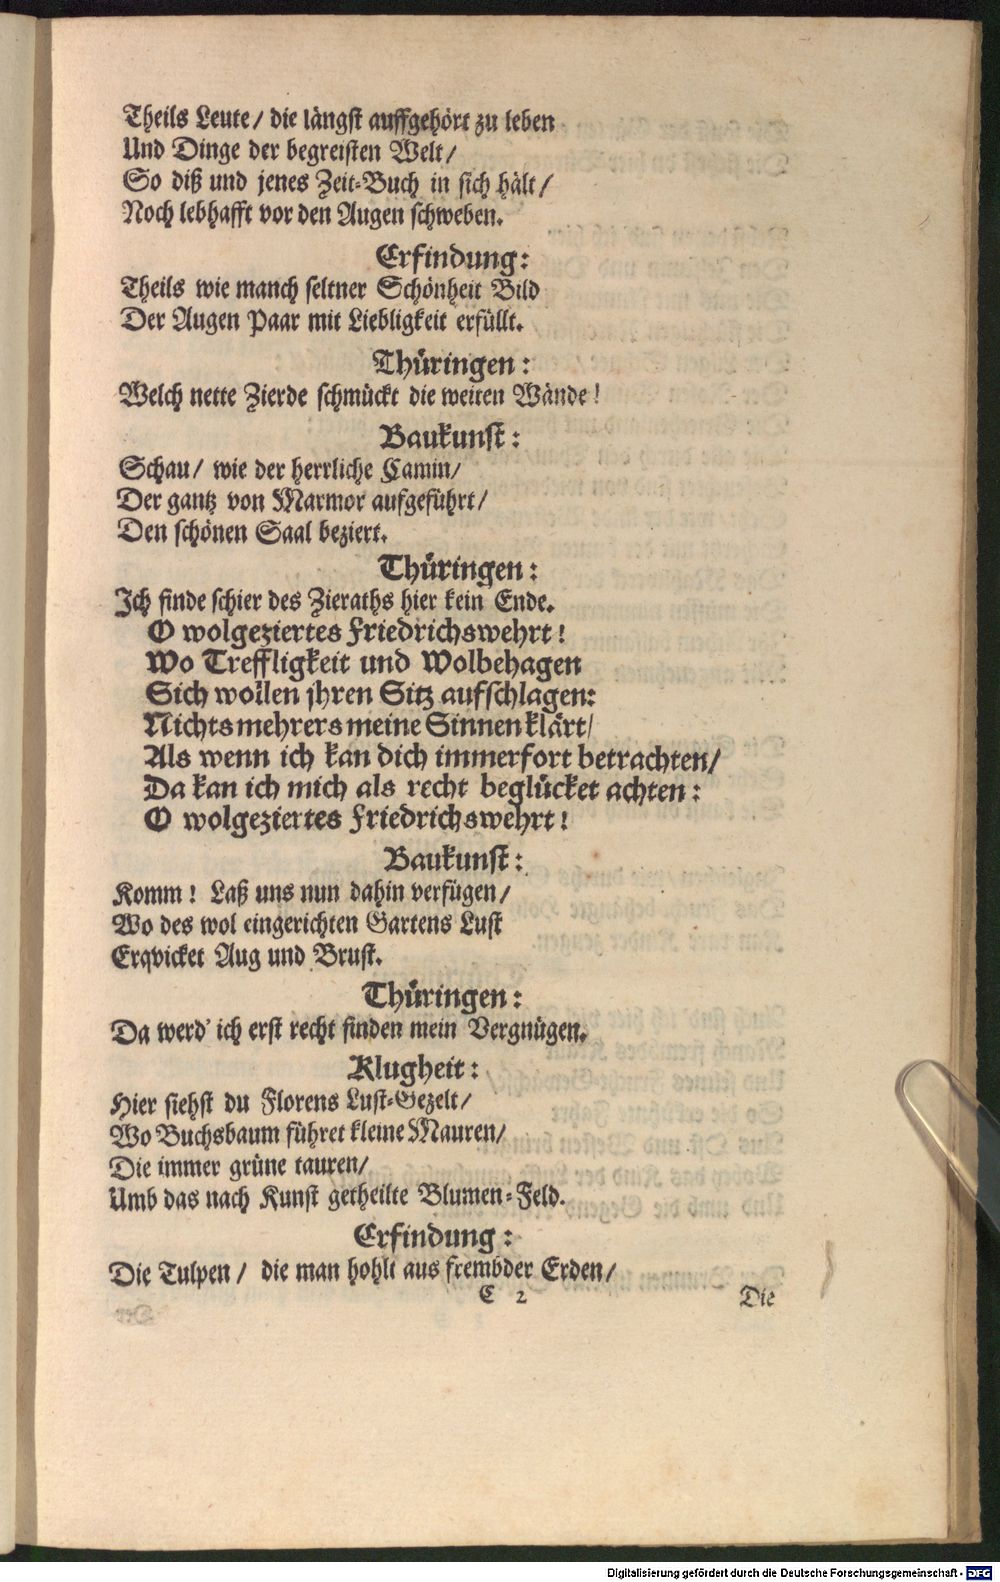 Theils Leute/ die längst auffgehört zu leben
Und Dinge der begreisten Welt/
So diß und jenes Zeit-Buch in sich hält/
Noch lebhafft vor den Augen schweben.
Erfindung:
Theils wie manch seltner Schönheit Bild
Der Augen Paar mit Liebligkeit erfüllt.
Thüringen:
Welch nette Zierde schmückt die weiten Wände!
Baukunst:
Schau/ wie der herrliche Camin/
Der gantz von Marmor aufgeführt/
Den schönen Saal beziert.
Thüringen:
Ich finde schier des Zieraths hier kein Ende.
O wolgeziertes Friedrichswehrt!
Wo Treffligkeit und Wolbehagen
Sich wollen jhren Sitz aufschlagen:
Nichts mehrers meine Sinnen klärt/
Als wenn ich kan dich immerfort betrachten/
Da kan ich mich als recht beglücket achten:
O wolgeziertes Friedrichswehrt!
Baukunst:
Komm! Laß uns nun dahin verfügen/
Wo des wol eingerichten Gartens Lust
Erqvicket Aug und Brust.
Thüringen:
Da werd' ich erst recht finden mein Vergnügen.
Klugheit:
Hier siehst du Florens Lust-Gezelt/
Wo Buchsbaum führet kleine Mauren/
Die immer grüne tauren/
Umb das nach Kunst getheilte Blumen-Feld.
Erfindung:
Die Tulpen/ die man hohlt aus frembder Erden/
C 2 Die
Digitalisierung gefördert durch die Deutsche Forschungsgemeinschaft - DFG